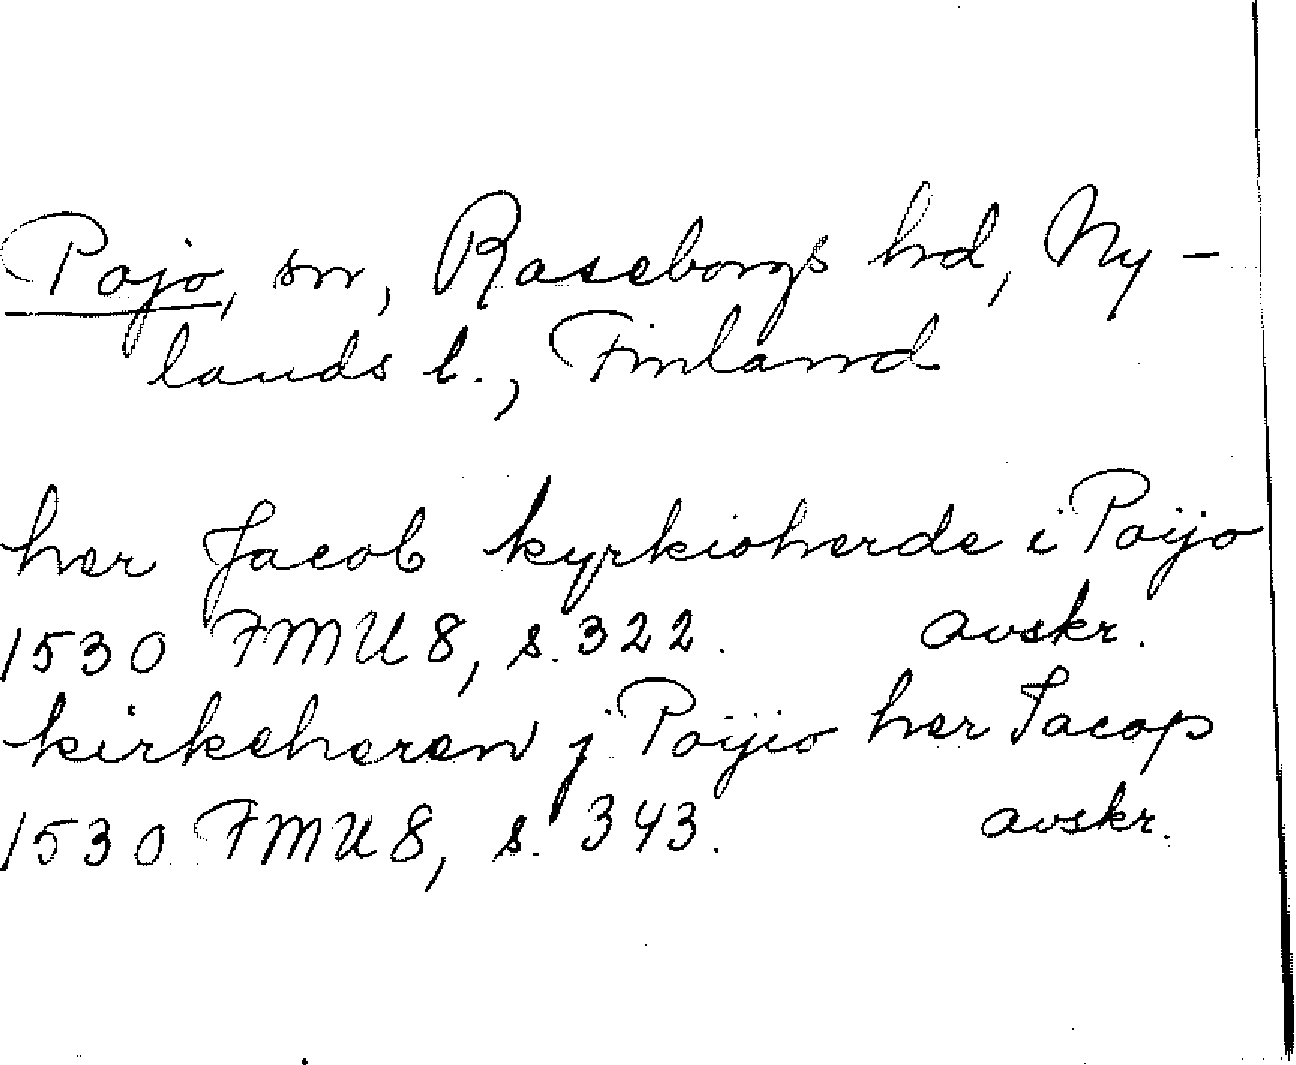 Pojo, sn, Raseborgs hd, Ny-
lands l., Finland
her Jacob kyrkioherde i Poijo
1530 FMU 8, s. 322. avskr.
kirkeheren j Poijio her Jacop
1530 FMU 8, s. 343. avskr.